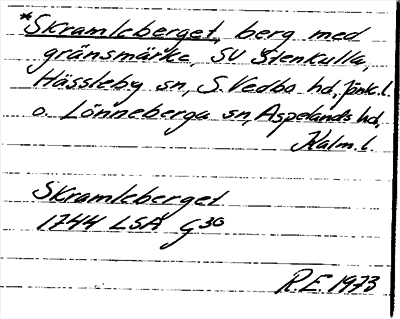 *Skramleberget, berg med
gränsmärke, SV Stenkulla,
Hässleby sn, S. Vedbo hd, Jönk. l.
o. Lönneberga sn, Aspelands hd,
Kalm. l.
Skramleberget
1744 LSA G30
R.E. 1973